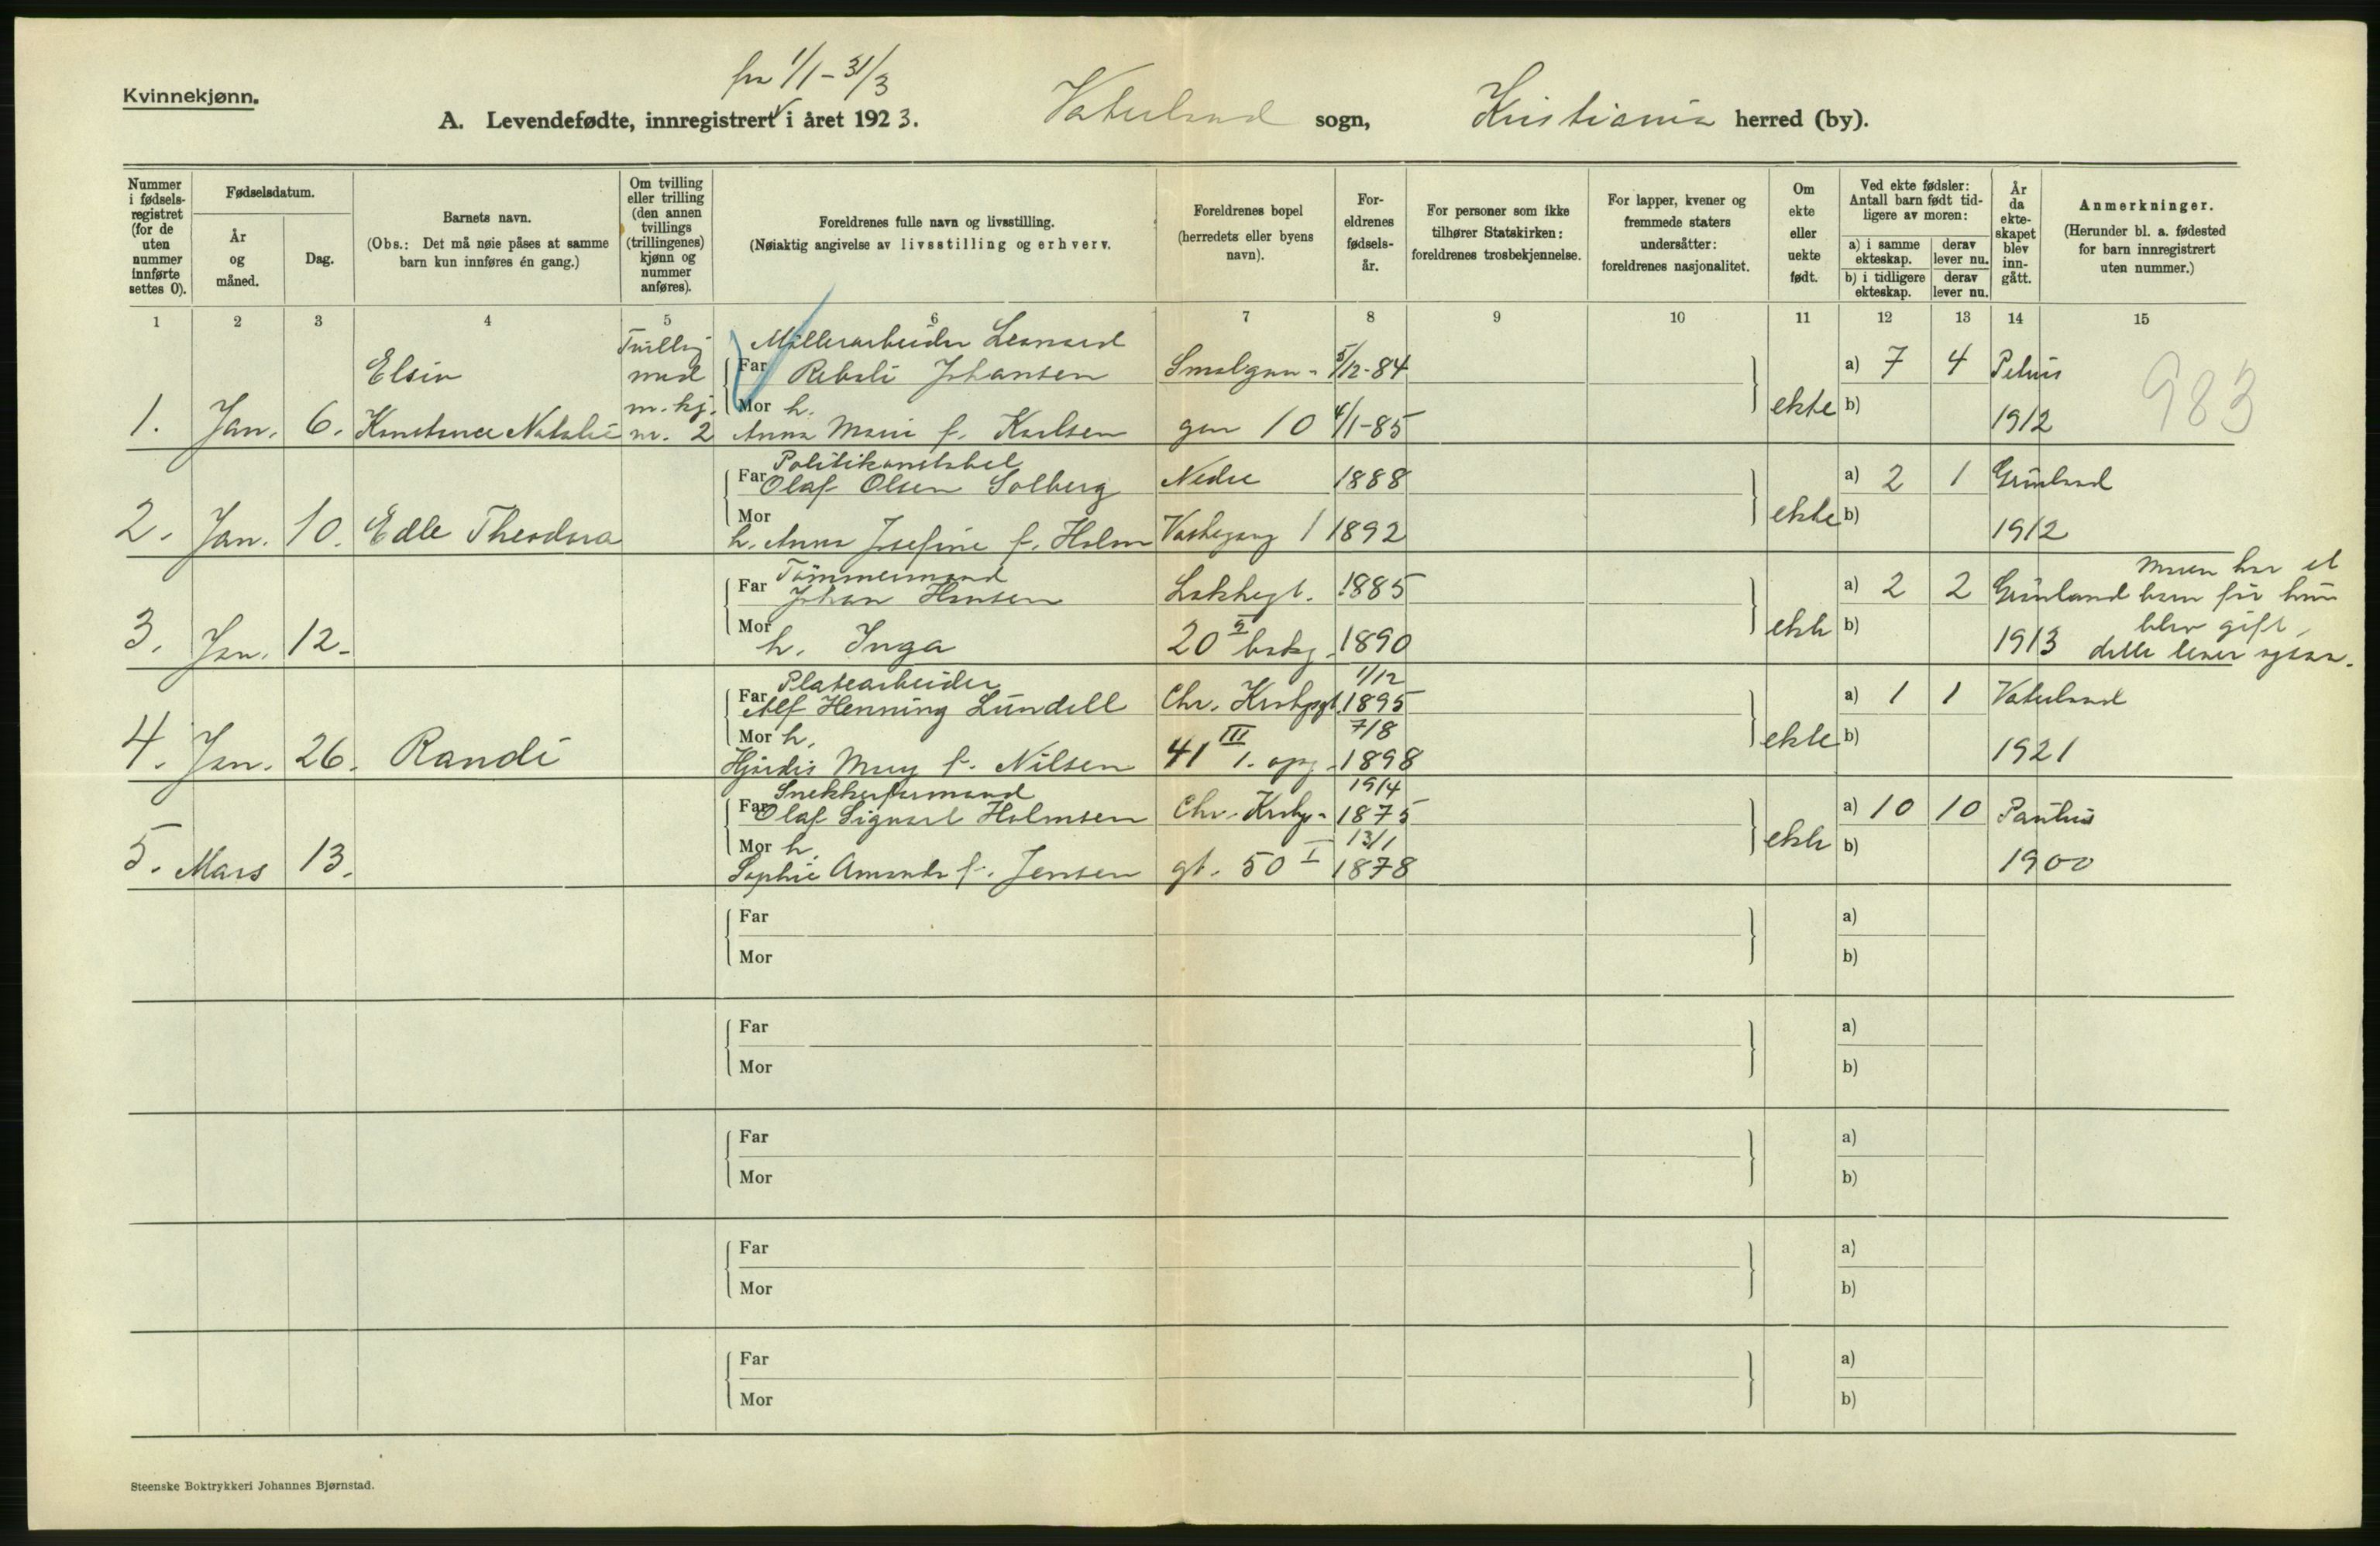 Kvinnekjønn.
fra 1/1 – 31/3
A. Levendefødte, innregistrert i året 1923. Vaterland sogn, Kristiania herred (by).
Nummer i fødsels-registret (for de uten nummer innførte settes 0).
Fødselsdatum.
År og måned.
Dag.
Barnets navn.
(Obs.: Det må nøie påses at samme barn kun innføres én gang.)
Om tvilling eller trilling (den annen tvillings (trillingenes) kjønn og nummer anføres).
Foreldrenes fulle navn og livsstilling.
(Nøiaktig angivelse av livsstilling og erhverv.
Foreldrenes bopel (herredets eller byens navn).
For-eldrenes fødsels-år.
For personer som ikke tilhører Statskirken: foreldrenes trosbekjennelse.
For lapper, kvener og fremmede staters undersåtter: foreldrenes nasjonalitet.
Om ekte eller uekte født.
Ved ekte fødsler: Antall barn født tid-ligere av moren:
a) i samme ekteskap.
derav lever nu.
b) i tidligere ekteskap.
derav lever nu.
År da ekte-skapet blev inn-gått.
Anmerkninger.
(Herunder bl. a. fødested for barn innregistrert uten nummer.)
1 2 3 4 5 6 7 8 9 10 11 12 13 14 15
Tvilling Møllerarbeider Leonard
Elsin med Far Johansen Smalgan- 5/12-84 a) 7 4 Petrus 983
m. kj. Mor h.
1. Jan. 6. Konstance Natalie nr. 2 Anna Marie f. Karlsen gen 10 4/1-85 ekte b) 1912
Politikonstabel
Far Olaf Olsen Solberg Nedre 1888 a) 2 1 Grønland
Mor
2. Jan. 10. Edle Theodora h. Anna Josefine f. Holm Vaskegang 1 1892 ekte b) 1912
Tømmermand Moren har et
Far Johan Hansen Lakkegt. 1885 a) 2 2 Grønland barn før hun
Mor blev gift,
3. Jan. 12. h. Inga 20 1890 ekte b) 1913 dette lever ogsaa.
Platearbeider 1/12
Far Alf Henning Lundell Chr. Krohgsgt. 1895 a) 1 1 Vaterland
Mor h. III 7/8
4. Jan. 26. Randi Hjørdis May f. Nilsen 41 1. opg. 1898 ekte b) 1921
Snekkerformand 19/4
Far Olaf Sigvart Holmsen Chr. Krohgs- 1875 a) 10 10 Paulus
Mor h. 13/1
5. Mars 13. Sophie Amanda f. Jensen gt. 50 I 1878 ekte b) 1900
Far a)
Mor b)
Far a)
Mor b)
Far a)
Mor b)
Far a)
Mor b)
Far a)
Mor b)
Steenske Boktrykkeri Johannes Bjørnstad.